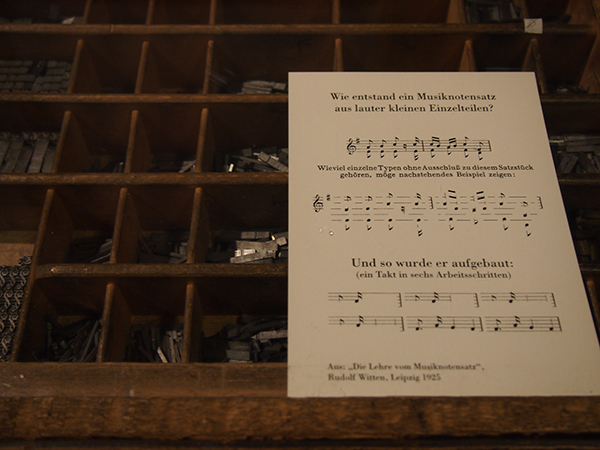 Wie entstand ein Musiknotensatz
aus lauter kleinen Einzelteilen?
Wieviel einzelne Typen ohne Ausschluß zu diesem Satzstück
gehören, möge nachstehendes Beispiel zeigen:
Und so wurde er aufgebaut:
(ein Takt in sechs Arbeitsschritten)
Aus: „Die Lehre vom Musiknotensatz“,
Rudolf Witten, Leipzig 1925